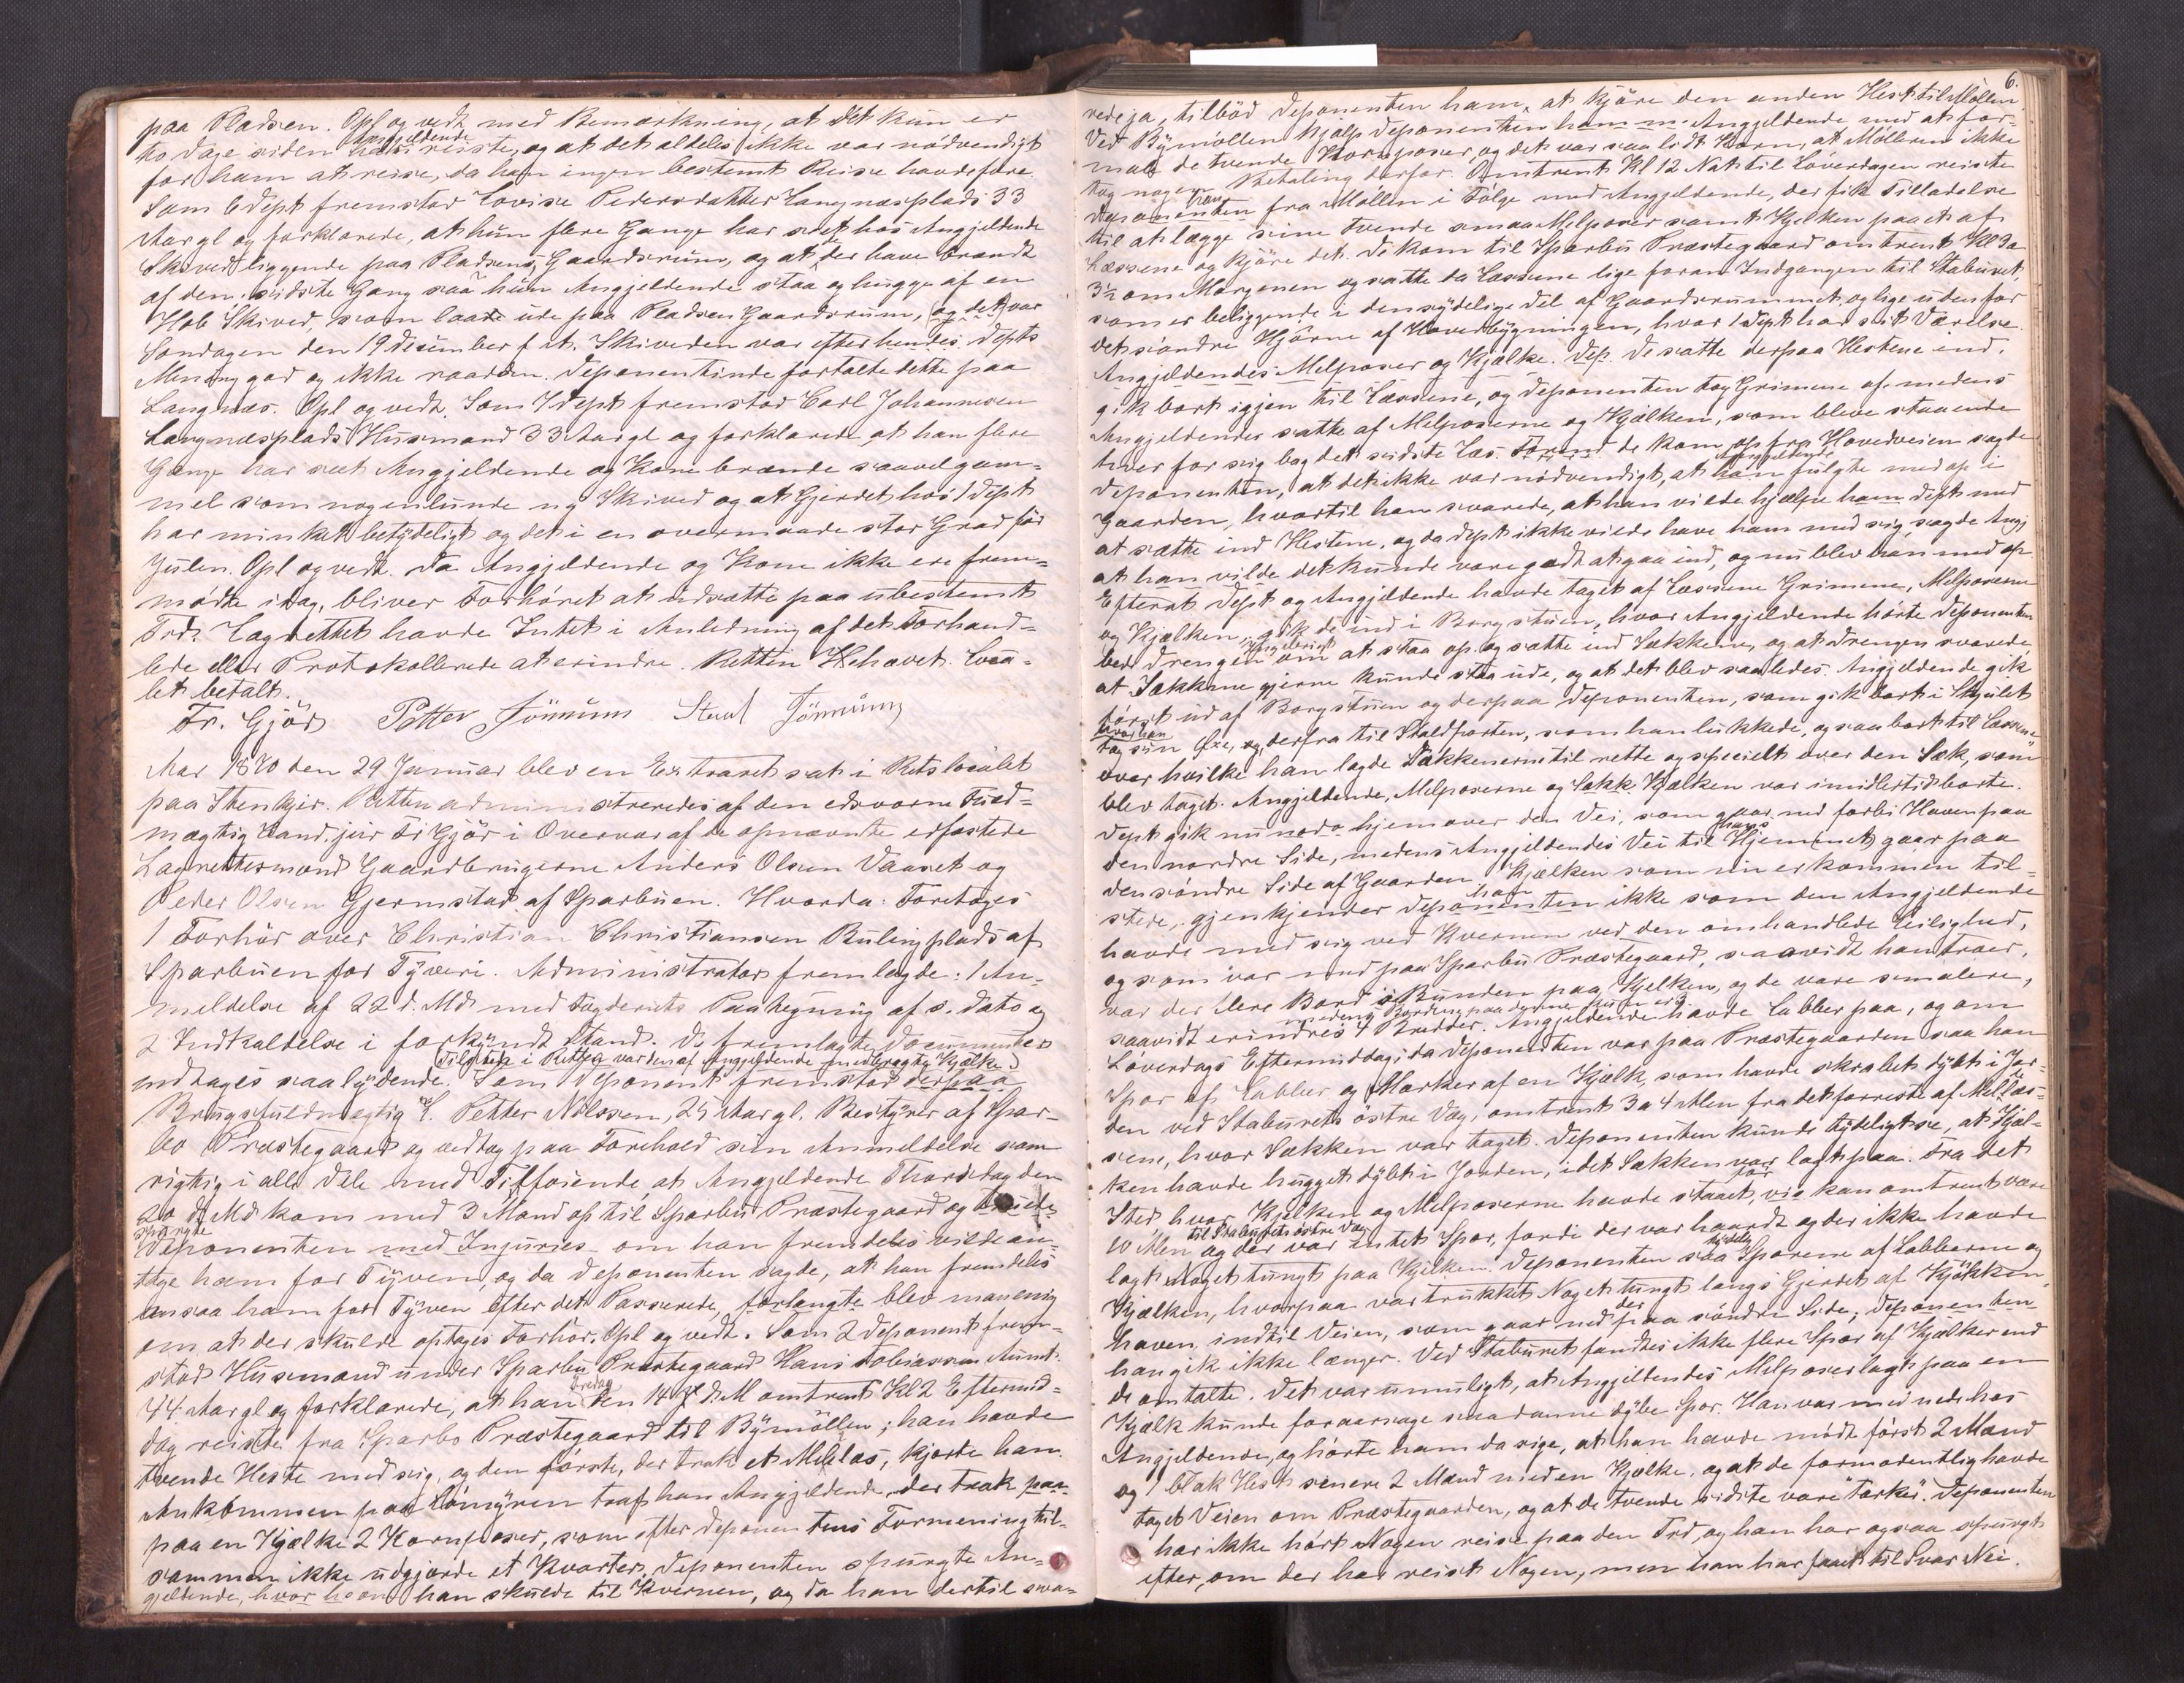 paa Pladsen. Opl og vedt med Bemærkning, at det kun er
to Dage siden Angjeldende reiste, og at det aldeles ikke var nødvendigt
for ham at reise, da han ingen bestemt Reise havde føre.
Som 6 Dept fremstod Lovise Pedersdatter Langnæsplads 33
Aar gl og forklarede, at hun flere Gange har seet hos Angjeldende
Skived liggende paa Pladsens Gaardsrum, og at de der have brændt
af den. sidste Gang saa hun Angjeldende staa og hugge af en
Hob Skived, som laae ude paa Pladsen Gaardsrum, og det var
Søndagen den 19 December f. A. Skiveden var efter hendes Depts
Mening god og ikke raadden. Deponentinde fortalte dette paa
Langnæs. Opl og vedt. Som 7 Dept fremstod Carl Johannesen
Langnæsplads Husmand 33 Aar gl og forklarede, at han flere
Gange har seet Angjeldende og Kone brænde saavel gam-
mel som nogenlunde ny Skived og at Gjerdet hos 1 Dept
har minket betydeligt og det i en overmaade stor Grad før
Julen. Opl og vedt. Da Angjeldende og Kone ikke ere frem-
mødte idag, bliver Forhøret at udsætte paa ubestemt
Tid. Lagrettet havde Intet i Anledning af det Forhand-
lede eller Protokollerede at erindre. Retten Hehævet. Loca-
let betalt.
Fr. Gjør Petter Jømnum Jømnum
Aar 1870 den 29 Januar blev en Extraret sat i Retslocalet
paa Stenkjer. Retten administreredes af den edsvorne Fuld-
mægtig Cand. jur Fr Gjør i Overvær af de opnævnte edfæstede
Lagrettesmænd Gaardbrugerne Anders Olsen Vaaset og
Peder Olsen Gjermstad af Sparbuen. Hvorda: Foretages
1 Forhør over Christian Christiansen Rulingplads af
Sparbuen for Tyveri. Administrator fremlagde: 1 An-
meldelse af 22 d. Md med Fogderiets Paategning af s. Dato og
2 Indkaldelse i forkyndt Stand. De fremlagte Documenter
indtages saalydende. Tilstede i Retten var den af Angjeldende medbragte Kjælke. Som Deponent fremstod derpaa
1 Brugsfuldmægtig S. Petter Nilssen, 25 Aar gl. Bestyrer af Spar-
bo Præstegaard og vedtog paa Forehold sin Anmeldelse som
rigtig i alle Dele med Tilføiende, at Angjeldende Thorsdag den
20 d. Md kom med 3 Mænd op til Sparbu Præstegaard og
spurgte Deponenten med Injurier om han fremdeles vilde an-
tage ham for Tyven, og da Deponenten sagde, at han fremdeles
ansaa ham for Tyven efter det Passerede, forlangte blev man enig
om at der skulde optages Forhør. Opl og vedt. Som 2 Deponent frem-
stod Husmand under Sparbu Præstegaard Hans Tobiassen Aunet
44 Aar gl og forklarede, at han Fredag den 14 d. M omtrent Kl 2 Eftermid-
dag reiste fra Sparbo Præstegaard til Bymøllen; han havde
tvende Heste med sig, og den første, der trak et Mellæs, kjørte han.
Ankommen paa Lømyren traf han Angjeldende, der trak paa-
paa en Kjælke 2 Kornposer, som efter Deponentens Formening til-
sammen ikke udgjorde et Kvarter. Deponenten spurgte An-
gjeldende, hvor han han skulde til Kvernen, og da han dertil sva-
6.
rede ja, tilbød Deponenten ham, at kjøre den anden Hest til Møllen
Ved Bymøllen hjalp Deponenten ham m Angjeldende med at for-
male de tvende Kornposer, og det var saa lidt Korn, at Mølleren ikke
tog nogen Betaling derfor. Omtrent Kl 12 Nat til Løverdagen reiste
han Deponenten fra Møllen i Følge med Angjeldende, der fik Tilladelse
til at lægge sine tvende smaa Melposer samt Kjelken paa et af
Læssene og kjøre det. De kom til Sparbu Præstegaard omtrent Kl 3 a
3½ om Morgenen og satte da Læssene lige foran Indgangen til Staburet,
som er beliggende i den sydelige Del af Gaardsrummet, og lige udenfor
det søndre Hjørne af Hovedbygningen, hvor 1 Dept har sit Værelse.
Angjeldendes Melposer og Kjælke. Dep. De satte derpaa Hestene ind.
gik bort igjen til Læssene, og Deponenten tog Grimene af medens
Angjeldendes satte af Melposerne og Kjælken, som bleve staaende
hver for sig bag det sidste Læs. Forend de kom op fra Hovedveien sagde
Deponenten, at det ikke var nødvendigt, at Angjeldende fulgte med op i
Gaarden, hvortil han svarede, at han vilde hjælpe ham Dept med
at sætte ind Hestene, og da Dept ikke vilde have ham med sig, sagde Angj
at han vilde det kunde være godt at gaa ind, og nu blev han med op
Efterat Dept og Angjeldende havde taget af Læssene Grimene, Melposerne
og Kjælken, gik de ind i Borgstuen, hvor Angjeldende hørte Deponenten
bede Drengen Ingebrigt om at staa op og sætte ind Sækkene, og at Drengen svarede
at Sækkene gjerne kunde staa ude, og at det blev saaledes. Angjeldende gik
først ud af Borgstuen og derpaa Deponenten, som gik bort i Skjulet
hvor han tog sin Øxe, og derfra til Staldporten, som han lukkede, og saa bort til Læssene
over hvilke han lagde Dækkenerne til rette og specielt over den Sæk, som
blev taget. Angjeldende, Melposerne og Sækk Kjælken var imidlertid borte.
Dept gik nu nordo hjemover den Vei, som gaar ned forbi Haven paa
den nordre Side, medens Angjeldendes Vei til hans Hjem(met) gaar paa
den søndre Side af Gaarden. Kjælken som nu er kommen til-
stede, gjenkjender han Deponenten ikke som den Angjeldende
havde med sig ved Kvernen ved den omhandlede Leilighed,
og som var med paa Sparbu Præstegaard, saavidt han troer,
var der flere Bord i Bunden paa Kjelken, og de vare smalere,
saavidt erindres 4 Bredder. Angjeldende havde Labber paa, og om
Løverdags Eftermiddag, da Deponenten var paa Præstegaarden saa han
Spor af Labber og Mærker af en Kjælk, som havde skrabet dybt i Jor-
den ved Staburets østre Væg, omtrent 3 a 4 Alen fra det forreste af Mellæs-
sene, hvor Sækken var taget. Deponenten kunde tydeligt se, at Kjæl-
ken havde hugget dybt i Jorden, idet Sækken var lagt paa. Fra det
Sted hvor Kjælken og Melposerne havde staaet, kan omtrent være
10 Alen til Staburets østre Væg og der var intet Spor, fordi der var haardt og der ikke havde
lagt Noget tungt paa Kjelken. Deponenten saa tydelig Sporene af Labberne og
Kjælken, hvorpaa var trukket Noget tungt langs Gjerdet af Kjøkken-
haven indtil Veien, som gaar ned der paa søndre Side; Deponenten
han gik ikke længer. Ved Staburet fandtes ikke flere Spor af Kjælker end
de omtalte. Det var umuligt, at Angjeldendes Melposer lagt paa en
Kjælk kunde foraarsage saadanne dybe Spor. Han var med nede hos
Angjeldende, og hørte ham da sige, at han havde mødt først 2 Mænd
og 1 blak Hest senere 2 Mænd med en Kjælke, og at de formodentlig havde
taget Veien om Præstegaarden, og at de tvende sidste vare "Tærker". Deponenten
har ikke hørt Nogen reise paa den Tid, og han har ogsaa spurgt
efter, om der har reist Nogen, men han har faaet til Svar Nei.